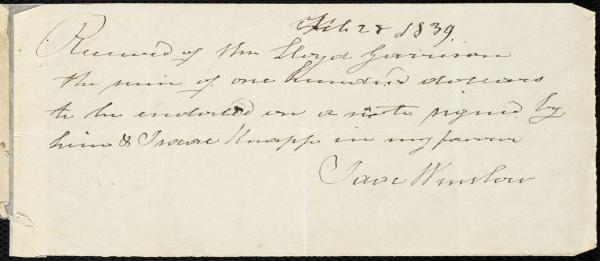 Feb 28 1839.
Received of Wm Lloyd Garrison
the sum of one hundred dollars
to be endorsed on a note signed by
him & Isaac Knapp in my favor
Isaac Winslow